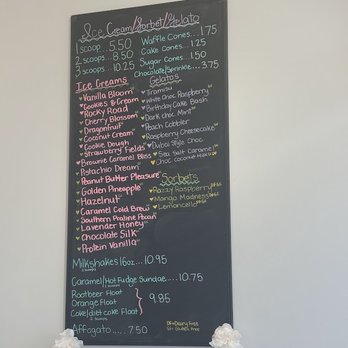 Ice Cream/Sorbet/Gelato
1 scoop....5.50
2 scoops...8.50
3 scoops...10.25
Waffle Cones...1.75
Cake Cones...1.25
Sugar Cones...1.50
Chocolate/Sprinkle...3.75
Ice Creams
Vanilla Bloom
Cookies & Cream
Rocky Road
Cherry Blossom
Dragonfruit
Coconut Cream
Cookie Dough
Strawberry Fields
Brownie Caramel Bliss
Pistachio Dream
Peanut Butter Pleasure
Golden Pineapple
Hazelnut
Caramel Cold Brew
Southern Praline Pecan
Lavender Honey
Chocolate Silk
Protein Vanilla
Gelatos
Tiramisu
White Choc Raspberry
Birthday Cake Bash
Dark Choc Mint
Peach Cobbler
Raspberry Cheesecake
Dubai Style Choc
Sea Salt Caramel
Choc Coconut
Sorbets
Razzy Raspberry
Mango Madness
Lemoncello
Milkshakes 16oz...10.95
Caramel/Hot Fudge Sundae....10.75
Rootbeer Float
Orange Float
Coke/diet coke Float
9.85
Affogato....7.50
DF=Dairy Free
GF=Gluten Free